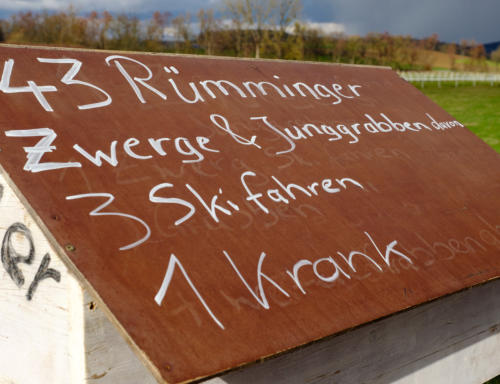 43 Rümminger
Zwerge & Junggrabben davon
3 Skifahren
1 Krank